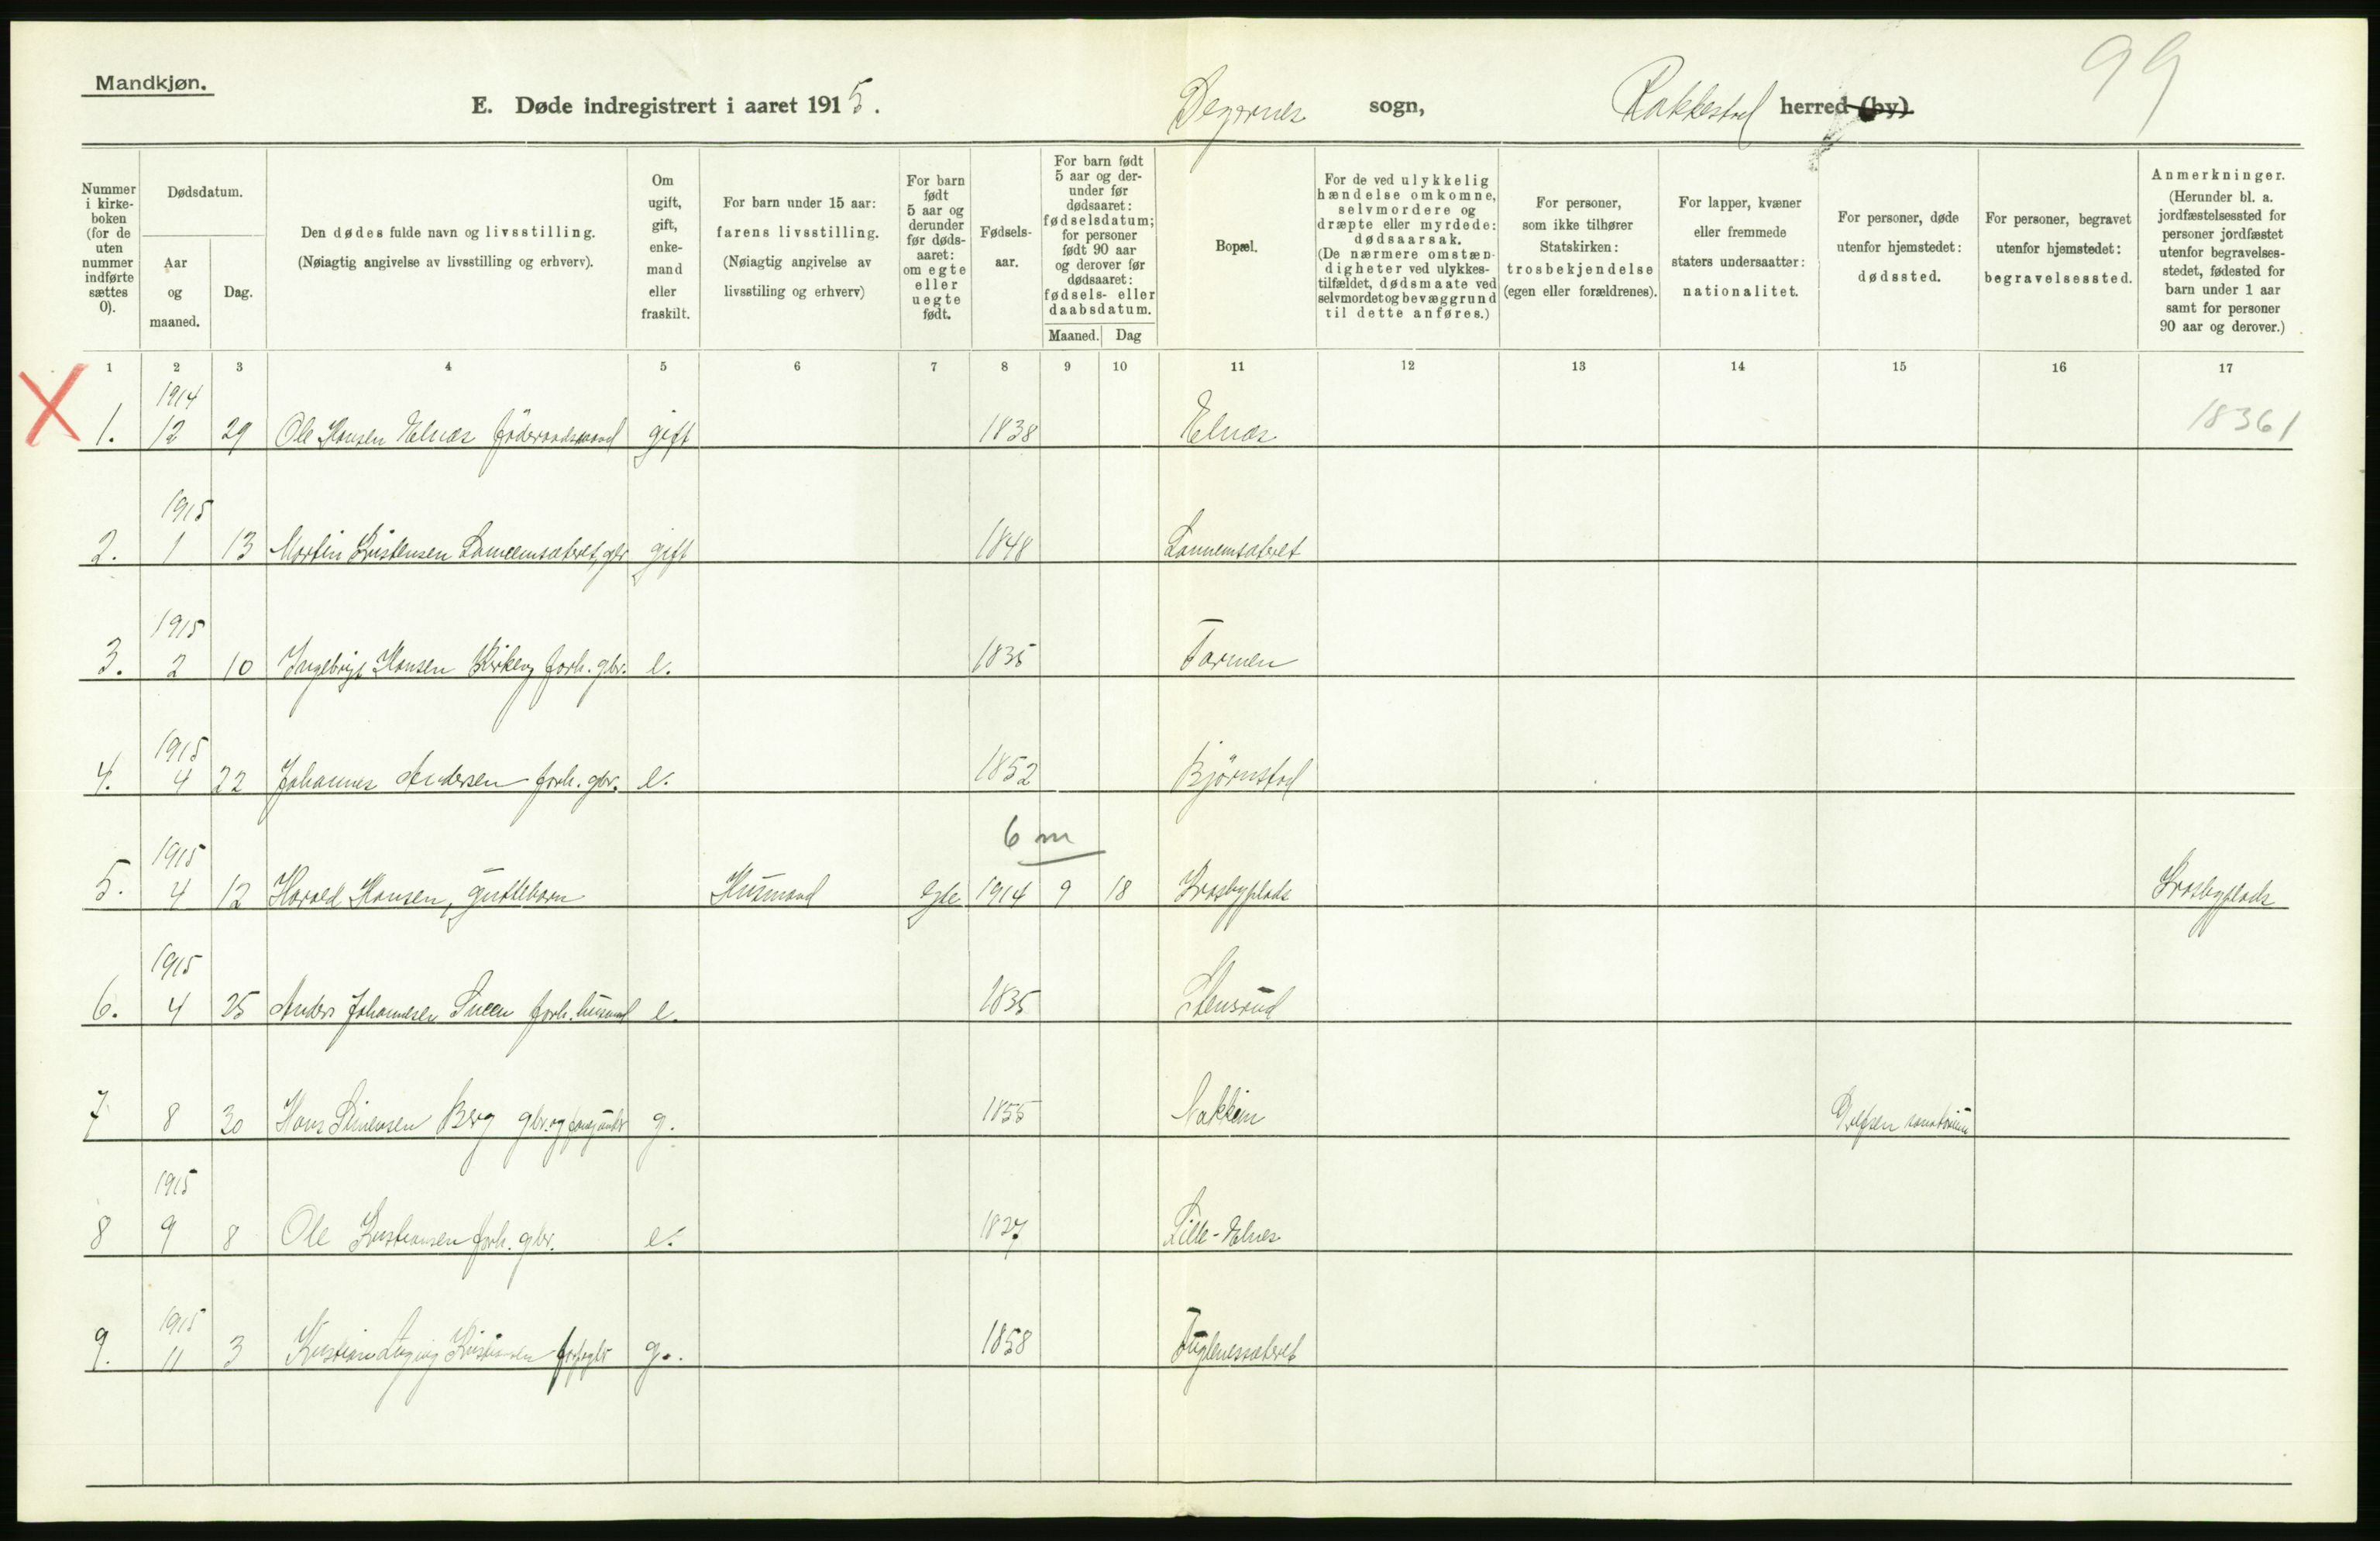 Mandkjøn.
99
E. Døde indregistrert i aaret 1915. Degernes sogn, Rakkestad herred (by).
Nummer i kirkeboken (for de uten nummer indførte sættes 0).
Dødsdatum.
Aar og maaned.
Dag.
Den dødes fulde navn og livsstilling.
(Nøiagtig angivelse av livsstilling og erhverv).
Om ugift, gift, enkemand eller fraskilt.
For barn under 15 aar: farens livsstilling.
(Nøiagtig angivelse av livsstiling og erhverv)
For barn født 5 aar og derunder før dødsaaret: om egte eller uegte født.
Fødselsaar.
For barn født 5 aar og derunder før dødsaaret: fødselsdatum; for personer født 90 aar og derover før dødsaaret: fødsels- eller daabsdatum.
Maaned. Dag
Bopæl.
For de ved ulykkelig hændelse omkomne, selvmordere og dræpte eller myrdede: dødsaarsak.
(De nærmere omstændigheter ved ulykkestilfældet, dødsmaate ved selvmordet og bevæggrund til dette anføres.)
For personer, som ikke tilhører Statskirken: trosbekjendelse (egen eller forældrenes).
For lapper, kvæner eller fremmede staters undersaatter: nationalitet.
For personer, døde utenfor hjemstedet: dødssted.
For personer, begravet utenfor hjemstedet: begravelsessted.
Anmerkninger.
(Herunder bl. a. jordfæstelsessted for personer jordfæstet utenfor begravelsesstedet, fødested for barn under 1 aar samt for personer 90 aar og derover.)
1 2 3 4 5 6 7 8 9 10 11 12 13 14 15 16 17
X 1. 1914 12 29 Ole Hansen Elnæs föderaadsmand gift 1838 Elnæs 18361
2. 1915 1 13 Martin Kristensen gbr gift 1848
3. 1915 2 10 Ingebrigt Hansen Kirkeng forh. gbr. e. 1835 Tormen
4. 1915 4 22 Johannes Andersen forh. gbr. e. 1852 Björnstad
6 m
5. 1915 4 12 Harald Hansen, guttebarn Husmand egte 1914 9 18 Krosbyplads Krosbyplads
6. 1915 4 25 Anders Johannesen forh. husmand e. 1835 Stensrud
7 8 30 Hans Simensen Berg gbr. og g. 1855 Nakkim Grefsen sanatorium
8 1915 9 8 Ole Kristiansen forh. gbr. e. 1827 Lille-Elnes
9. 1915 11 3 Kristian Kristiansen g. 1858 Fuglenessæteret